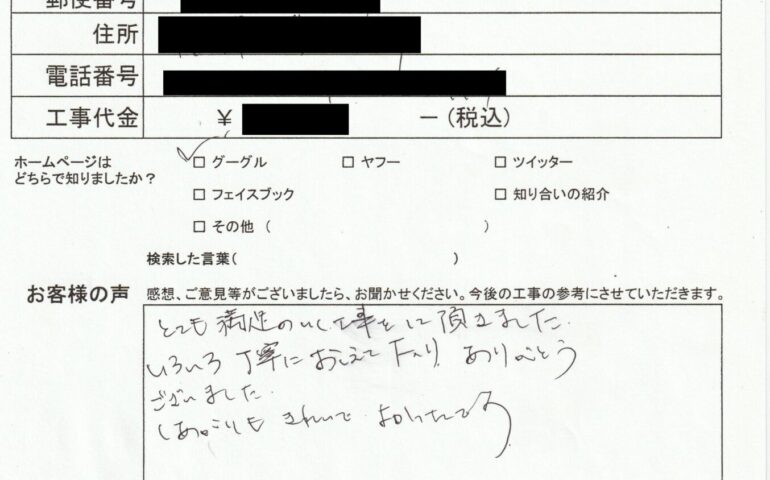 郵便番号
住所
電話番号
工事代金 ¥ ー(税込)
ホームページは
どちらで知りましたか?
□ グーグル □ ヤフー □ ツイッター
□ フェイスブック □ 知り合いの紹介
□ その他 ( )
検索した言葉( )
お客様の声 感想、ご意見等がございましたら、お聞かせください。今後の工事の参考にさせていただきます。
とても満足のいく工事をして頂きました.
いろいろ丁寧におしえて下さり ありがとう
ございました.
しあがりも きれいで よかったです